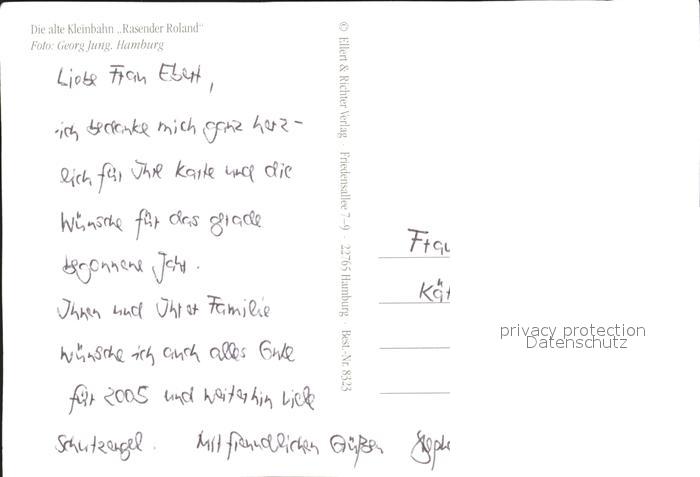 Die alte Kleinbahn „Rasender Roland“
Foto: Georg Jung, Hamburg
Liebe Frau Ebert,
ich bedanke mich ganz herz-
lich für Ihre Karte und die
Wünsche für das grade
begonnene Jahr.
Ihnen und Ihrer Familie
wünsche ich auch alles Gute
für 2005 und weiterhin viele
Schutzengel. Mit freundlichen Grüßen
© Ellert & Richter Verlag · Friedensallee 7–9 · 22765 Hamburg · Best.-Nr. 8323
Frau
Kät
privacy protection
Datenschutz